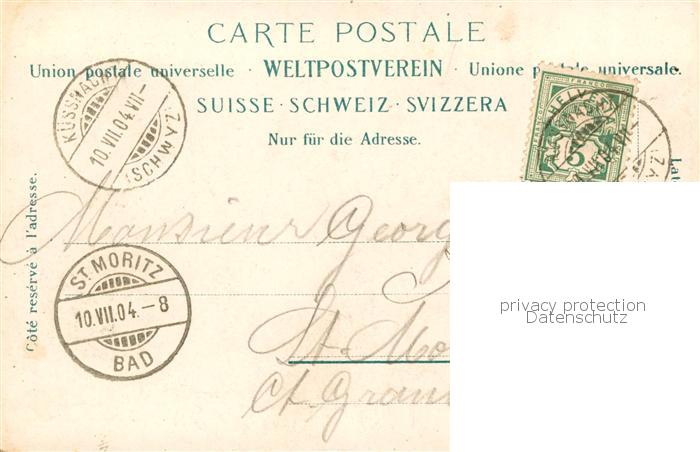 CARTE POSTALE
Union postale universelle · WELTPOSTVEREIN · Unione postale universale.
SUISSE · SCHWEIZ · SVIZZERA
Nur für die Adresse.
KÜSSNACHT
10.VII.04.VII-
(SCHWYZ)
HELVETIA
5
Côté reservé à l'adresse.
Lat
Monsieur Georg
ST. MORITZ
10.VII.04.-8
BAD
St. Mo
Ct. Grau
privacy protection
Datenschutz